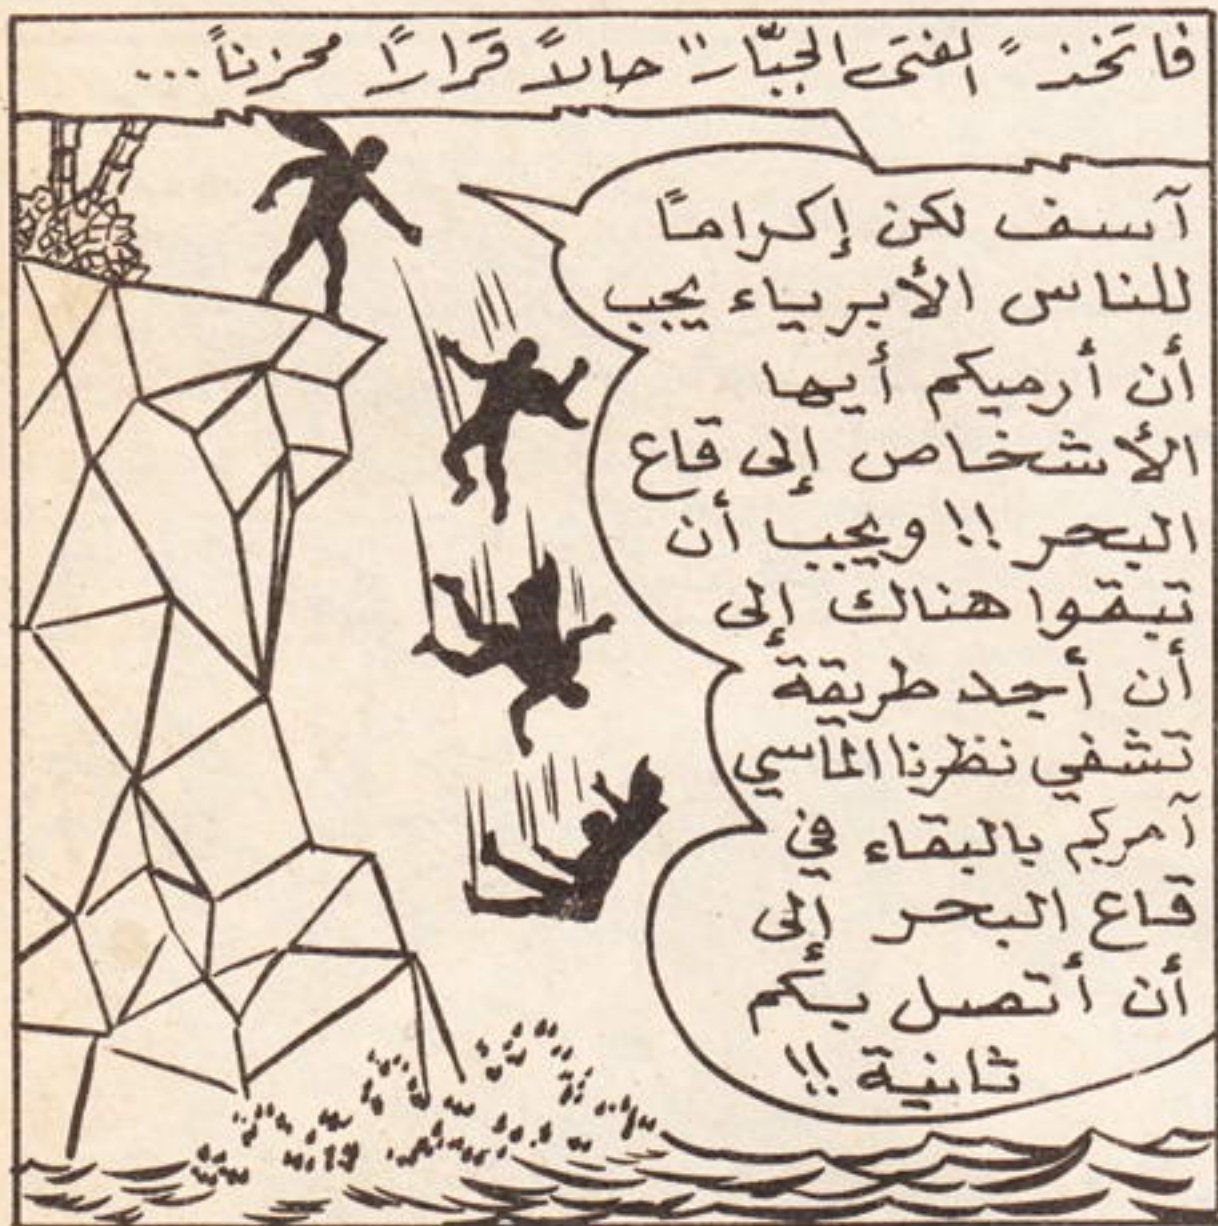 فاتخذ "الفتى الجبّار" حالاً قراراً محزناً...
آسف لكن إكراماً
للناس الأبرياء يجب
أن أرميكم أيها
الأشخاص إلى قاع
البحر !! ويجب أن
تبقوا هناك إلى
أن أجد طريقة
تشفي نظرنا الماسي
آمركم بالبقاء في
قاع البحر إلى
أن أتصل بكم
ثانية !!